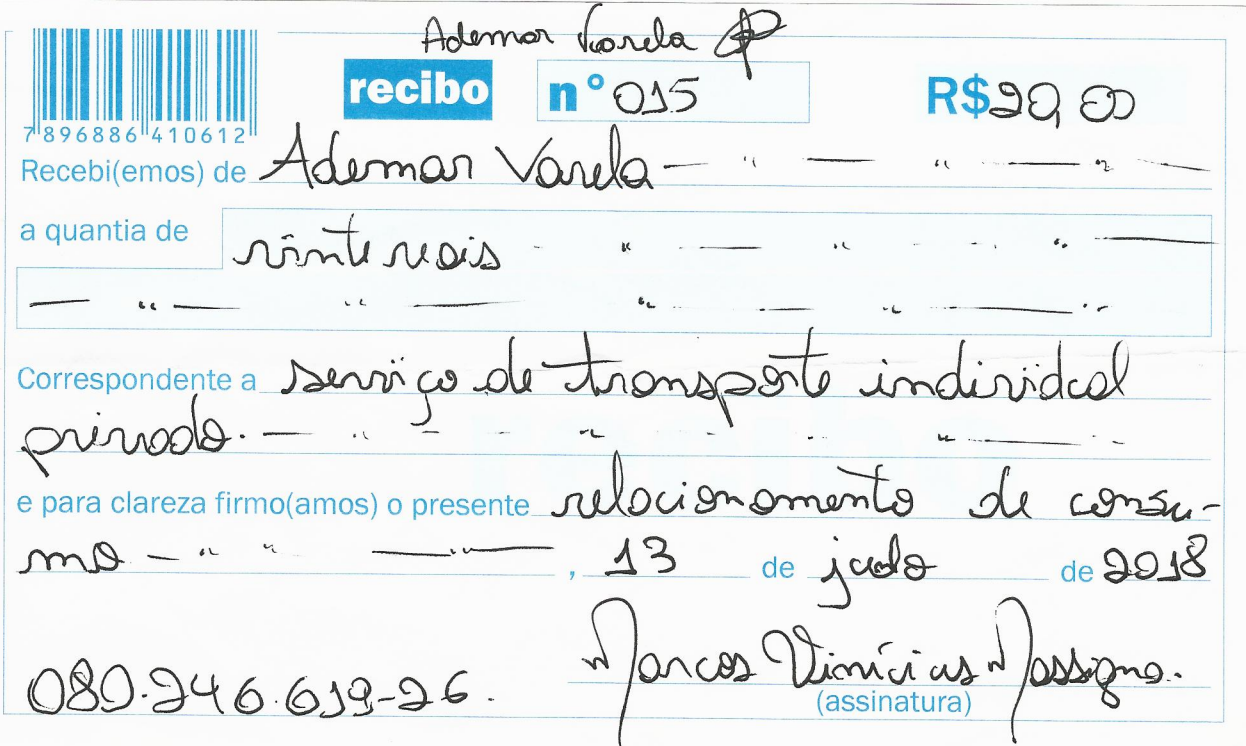 Ademar Varela
recibo nº 015 R$ 20,00
7 896886 410612
Recebi(emos) de Ademar Varela — " — " — " —
a quantia de vinte reais - " — " — " —
— " — " — " — " — "
Correspondente a serviço de transporte individual
privado. — " — " — " — "
e para clareza firmo(amos) o presente relacionamento de consu-
mo — " " — " — , 13 de julho de 2018
080.246.619-26. Marcos Vinícius Massigna.
(assinatura)